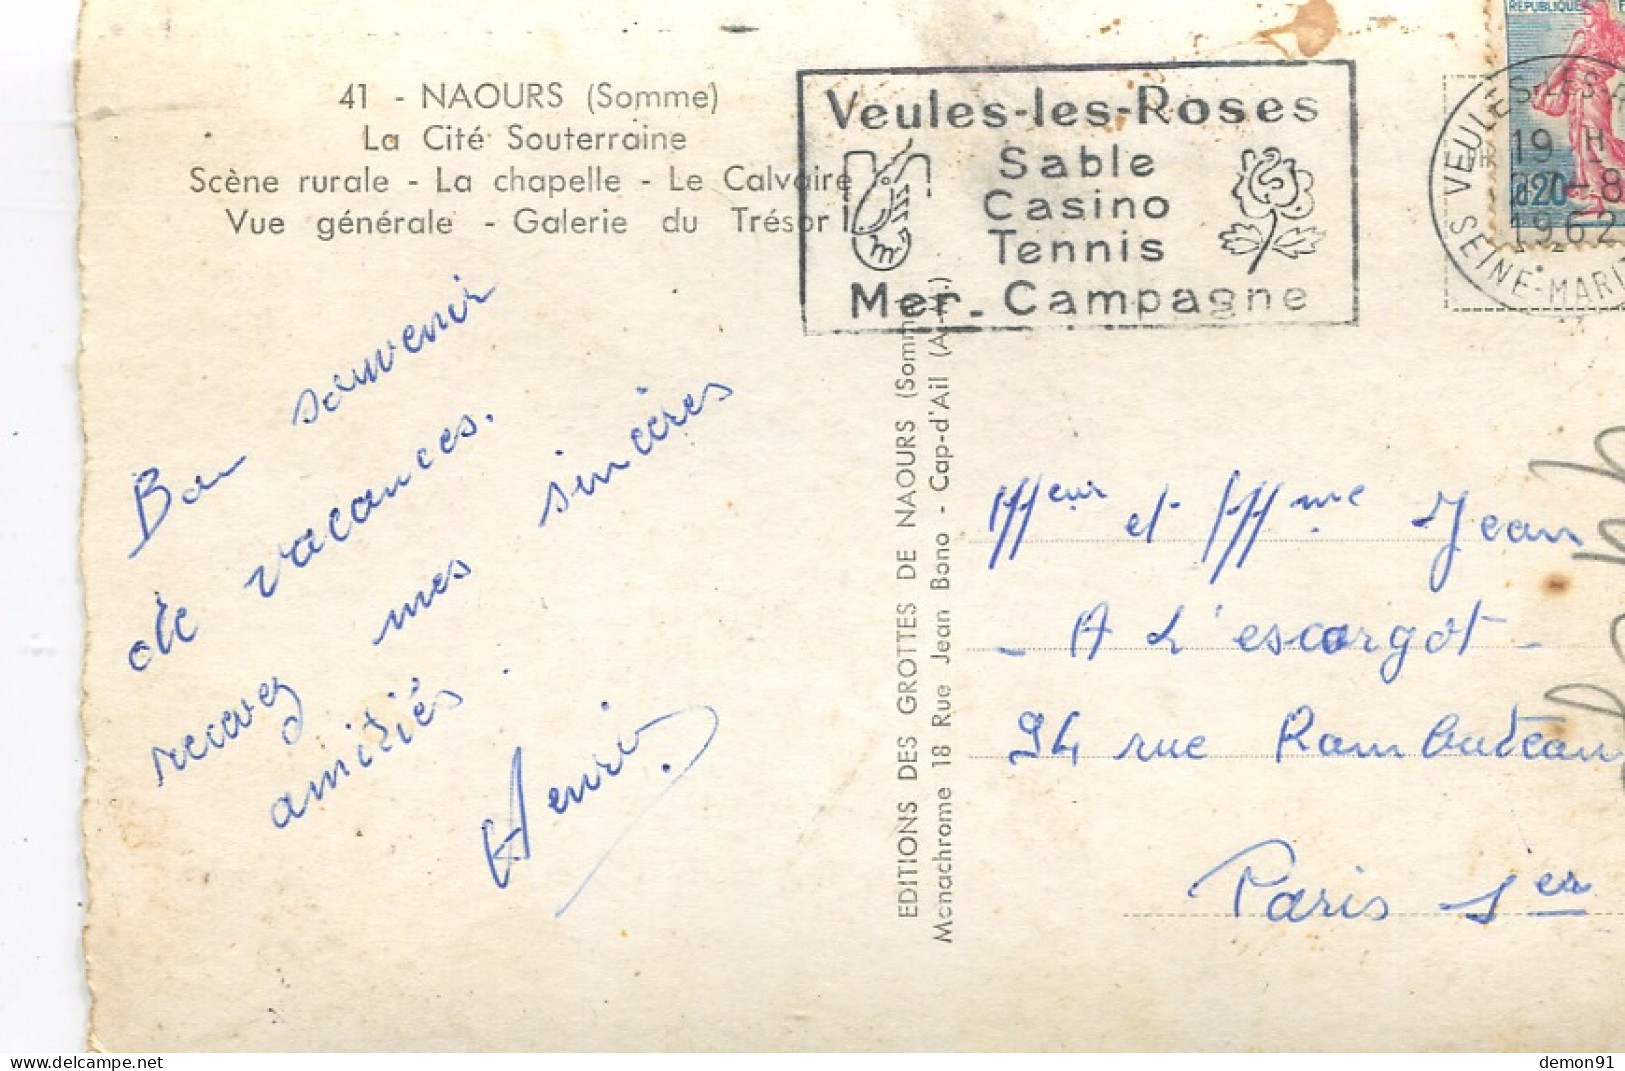 41 - NAOURS (Somme)
La Cité Souterraine
Scène rurale - La chapelle - Le Calvaire
Vue générale - Galerie du Trésor
Veules-les-Roses
Sable
Casino
Tennis
Mer_Campagne
REPUBLIQUE F
0,20
VEULES-LES-R
19 H
-8
1962
SEINE-MARIT
Bon souvenir
de vacances.
recevez mes sincères
amitiés.
Henri
EDITIONS DES GROTTES DE NAOURS (Somme)
Monachrome 18 Rue Jean Bono - Cap-d'Ail (A.-M.)
Meur et Mme Jean
- A L'escargot -
94 rue Rambuteau
Paris 1er
delcampe.net
demon91